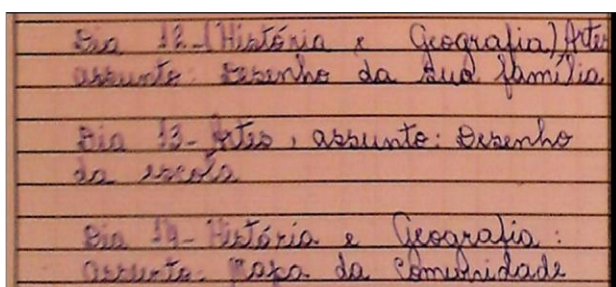 Dia 12-(História e Geografia) Artes
assunto: Desenho da sua família
Dia 13- Artes, assunto: Desenho
da escola
Dia 14- História e Geografia:
Assunto: Mapa da Comunidade